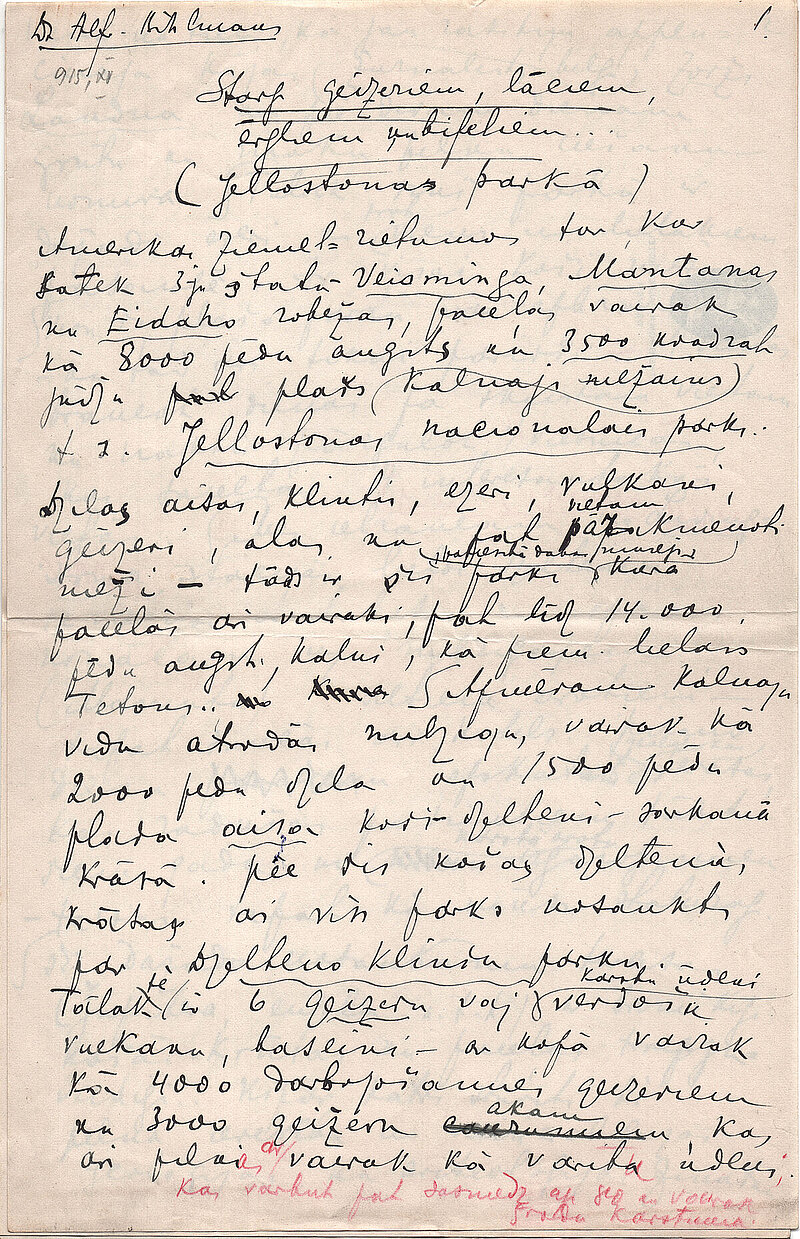 Dr. Alf.
1.
915, XI
Starp geizeriem, lāciem,
ērgļiem un bifeļiem...
(Jellostonas parkā)
Amerikas ziemeļ-rietumos tur, kur
satek 3ju štatu – Veisminga, Mantanas
un Eidaho robežas, paceļas vairak
kā 8000 pēdu augsts un 3500 kvadrat
jūdžu plašs kalnājs mežains
t. s. Jellostonas nacionalais parks.
Dziļas aisas, klintis, ezeri, vulkani,
vietām
geizeri, alas un pat pārakmenoti
meži – tāds ir šis parks, kura
paceļas arī vairaki, pat līdz 14.000
pēdu augsti, kalni, kā piem. lielais
Tetons.. Šitamēram kalnaju
vidū atrodās milzīga, vairak kā
2000 pēdu dziļa un 1500 pēdu
plata aisa koši-dzelteni-sarkanā
krāsā. Pēc šis košas dzeltenās
krāsas arī viss parks nosaukts
par Dzelteno klinšu parku.
karstu ūdeni
Tālak tē ir 6 geizeru vaj verdošu
vulkanu, baseini – ar kopā vairak
kā 4000 darbojošamies geizeriem
akām
un 3000 geizeru, kas
arī pilnas ar vairak kā vārīta ūdeni,
kas varbut pat sasniedz ap un vairak
gradu karstuma.